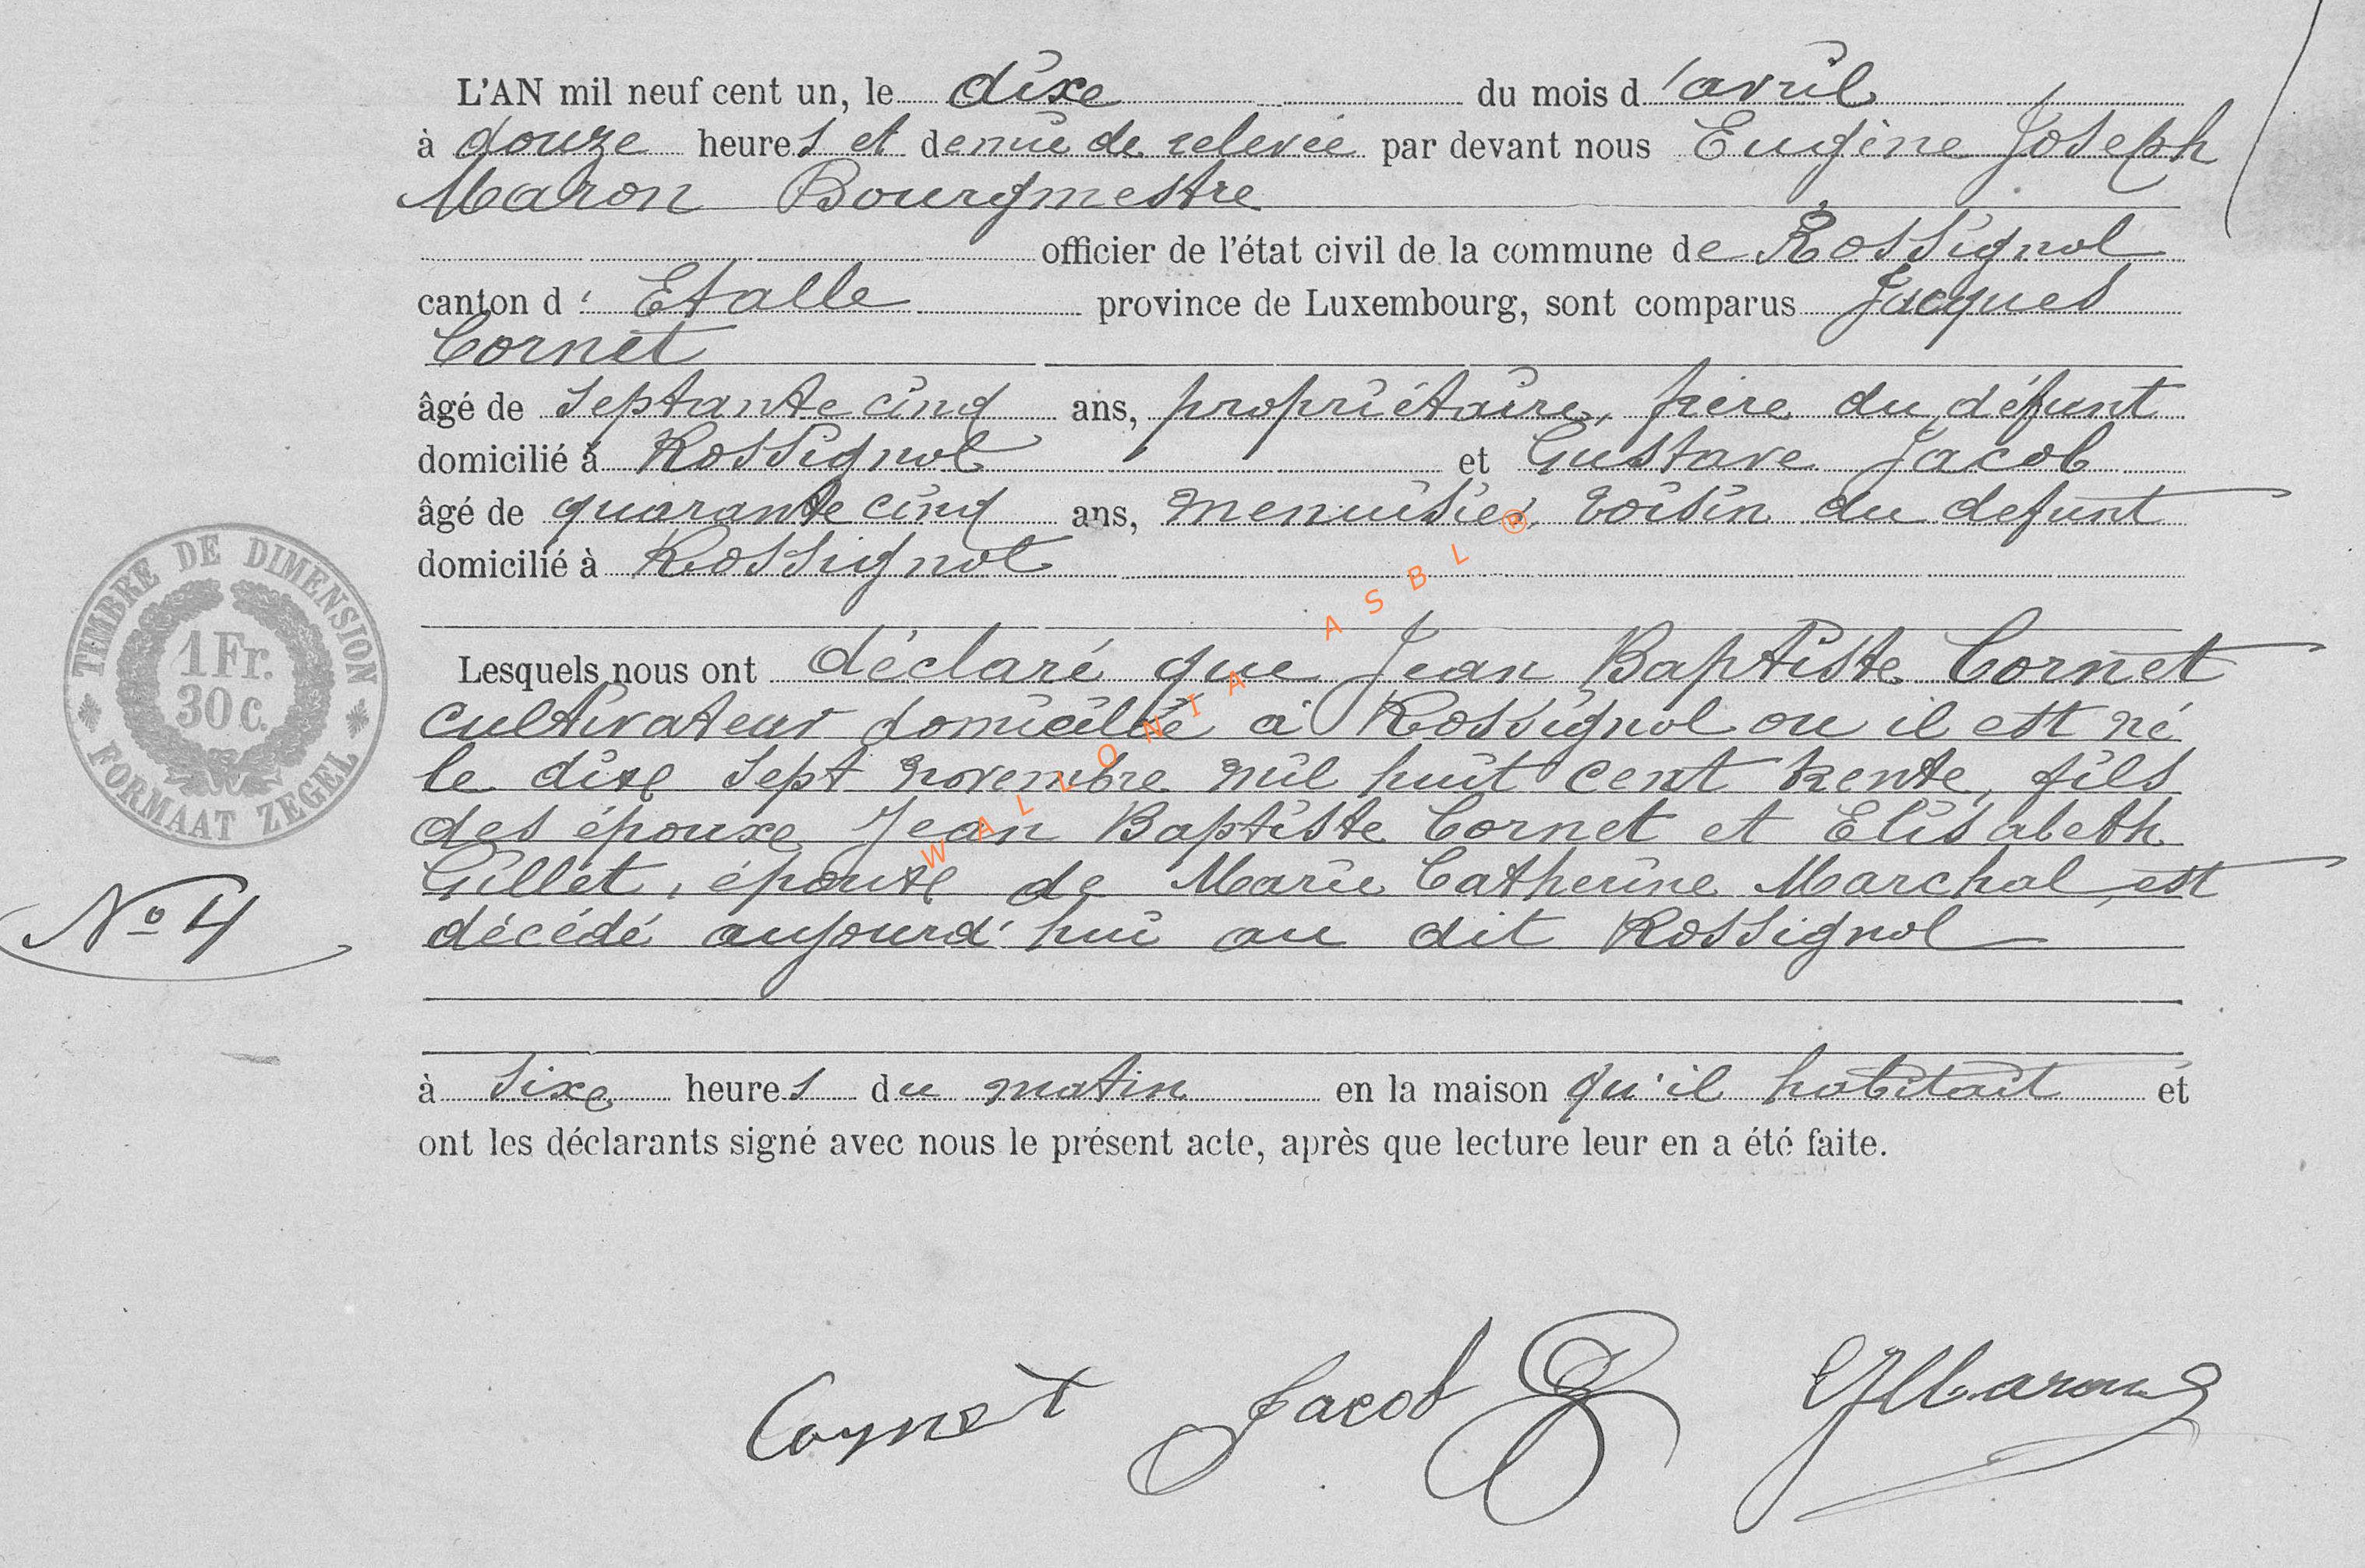 L'AN mil neuf cent un, le dix du mois d'avril
à douze heures et demie de relevée par devant nous Eugène Joseph
Maron Bourgmestre
officier de l'état civil de la commune de Rossignol
canton d'Etalle province de Luxembourg, sont comparus Jacques
Cornet
âgé de septante cinq ans, propriétaire, frère du défunt
domicilié à Rossignol et Gustave Jacob
âgé de quarante cinq ans, menuisier voisin du defunt
domicilié à Rossignol
Lesquels nous ont déclaré que Jean Baptiste Cornet
cultivateur domicilié à Rossignol ou il est né
le dix sept novembre mil huit cent trente, fils
des époux Jean Baptiste Cornet et Elisabeth
Gillet, époux de Marie Catherine Marchal, est
décédé aujourd'hui au dit Rossignol
à six heures du matin en la maison qu'il habitait et
ont les déclarants signé avec nous le présent acte, après que lecture leur en a été faite.
Cornet Jacob EJMaron
TIMBRE DE DIMENSION
1 Fr.
30 c.
FORMAAT ZEGEL
No 4
WALLONIA ASBL ®